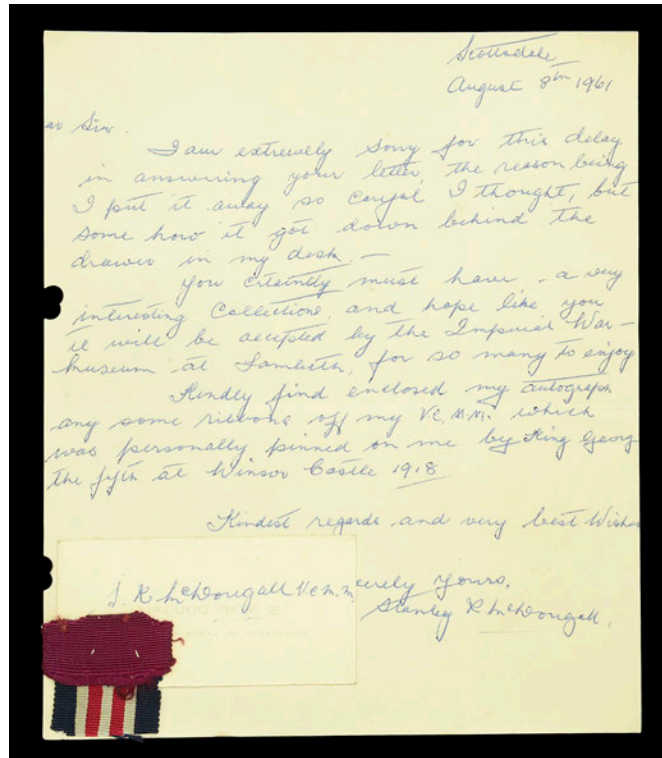 Scottsdale
August 8th 1961
ar Sir.
I am extremely sorry for this delay
in answering your letter, the reason being
I put it away so careful I thought, but
some how it got down behind the
drawer in my desk. —
You certintly must have a very
interesting Collections, and hope like you
it will be accepted by the Imperial War –
Museum at Lambeth, for so many to enjoy
Kindly find enclosed my autograph
any some ribbons off my VC, M.M. which
was personally pinned on me by King Georg
the fyth at Winsor Castle 1918
Kindest regards and very best Wishes
cerely yours,
S. R McDougall V.C M.M.
Stanley R McDougall.